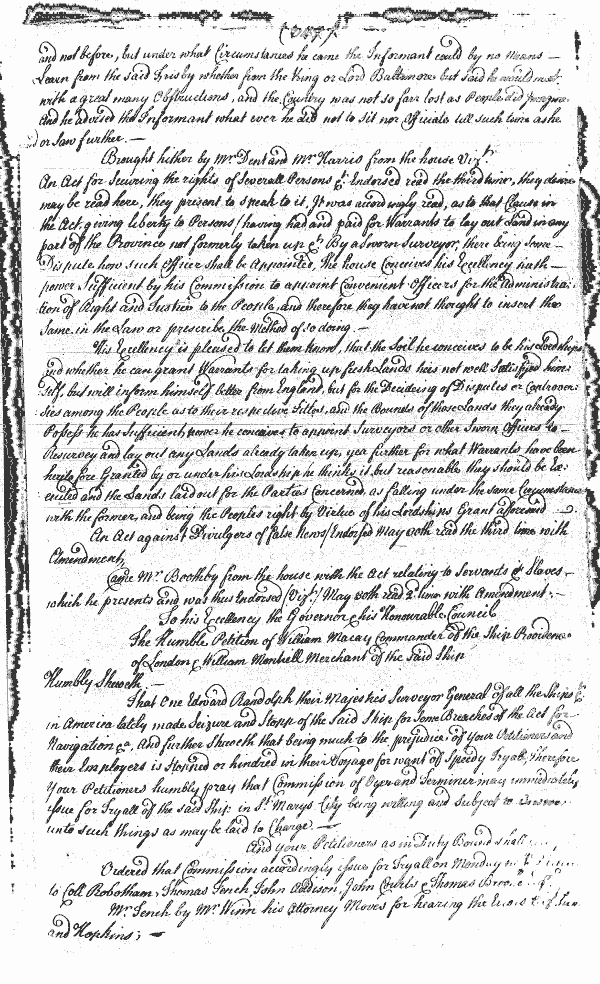 (347)
and not before, but under what Circumstances he came the Informant could by no means
Learn from the said Frisby whether from the King or Lord Baltemore but said he would meet
with a great many Obstructions, and the Country was not so farr lost as People did
And he advised the Informant what ever he did not to sit nor Officiate till such time as he
or saw further.
Brought hither by Mr. Dent and Mr. Harris from the house Vizt.
An Act for Securing the rights of Severall Persons &c. Endorsed read the third time, they desire
may be read here, they present to speak to it, It was accordingly read, as to that Clause in
the Act, giving liberty to Persons (having had and paid for Warrants to lay out Land in any
part of the Province not formerly taken up &c. By a Sworn Surveyor, there being Some
Dispute how such Officer shall be Appointed, The house Conceives his Excellency hath
power Sufficient by his Commission to appoint Convenient Officers for the Administra:
tion of Right and Justice to the People, and therefore they have not thought to insert the
Same in the Law or prescribe the Method of so doing.
His Excellency is pleased to let them know, that the Soil he conceives to be his Lordships
and whether he can grant Warrants for taking up fresh Lands he is not well Satisfied him:
self, but will inform himself better from England, but for the Deciding of Disputes or Controver:
sies among the People as to their respective Titles, and the Bounds of those Lands they already
Possess he has Sufficient power he conceives to appoint Surveyors or other Sworn Officers to
Resurvey and lay out any Lands already taken up, yea further for what Warrants have been
heretofore Granted by or under his Lordship he thinks it but reasonable they should be Ex:
ecuted and the Lands laid out for the Parties Concerned, as falling under the same Circumstance
with the former, and being the Peoples right by Virtue of his Lordships Grant aforesaid
An Act against Divulgers of false News/Endorsed May 30th read the third time with
Amendment,
Came Mr. Boothby from the house with the Act relating to Servants & Slaves
which he presents and was thus Endorsed (Vizt.) May 30th read 2d. time with Amendment:
To his Excellency the Governor & his Honourable Council
The Humble Petition of William Macay Commander of the Ship Providence
of London & William Monhell Merchant of the Said Ship
Humbly Sheweth
That One Edward Randolph their Majesties Surveyor General of all the Ships &c.
in America lately made Seizure and Stopp of the Said Ship for Some Breaches of the Act for
Navigation &c. And further Sheweth that being much to the prejudice of your Petitioners and
their Employers is Stopped or hindred in their Voyage for want of Speedy Tryall, Therefore
Your Petitioners humbly pray that Commission of Oyer and Terminer may immediately
issue for Tryall of the said Ship in St. Marys City being willing and Subject to Answer
unto such things as may be laid to Charge.
And your Petitioners as in Duty Bound shall
Ordered that Commission accordingly issue for Tryall on Monday
to Coll Robotham, Thomas Tench John Addison, John Courts & Thomas Brooke
Mr. Tench by Mr. Winn his Attorney Moves for hearing the
and Hopkins;